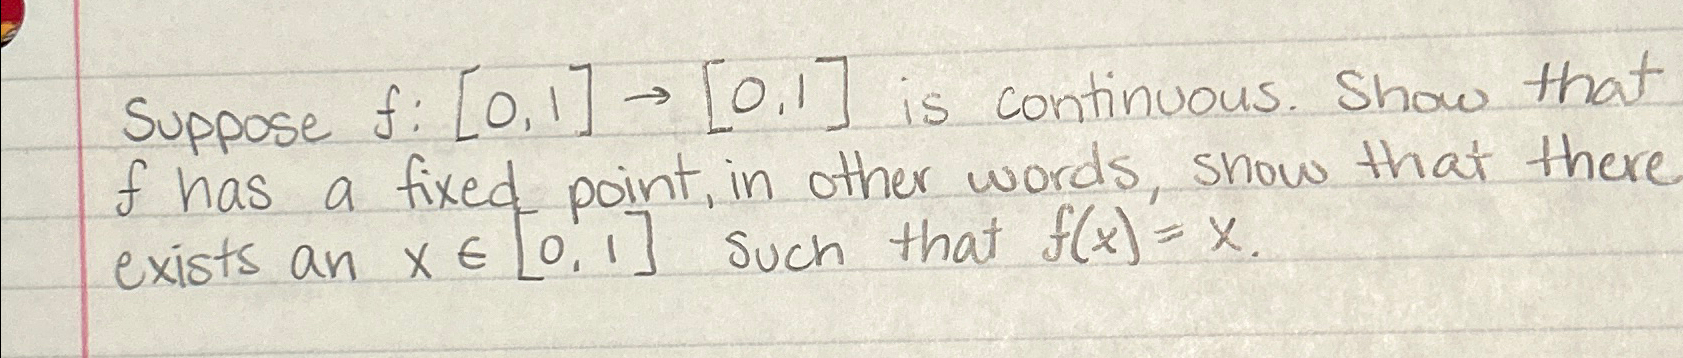 Suppose f: [0,1] → [0,1] is continuous. Show that
f has a fixed point, in other words, show that there
exists an x ∈ [0,1] such that f(x) = x.